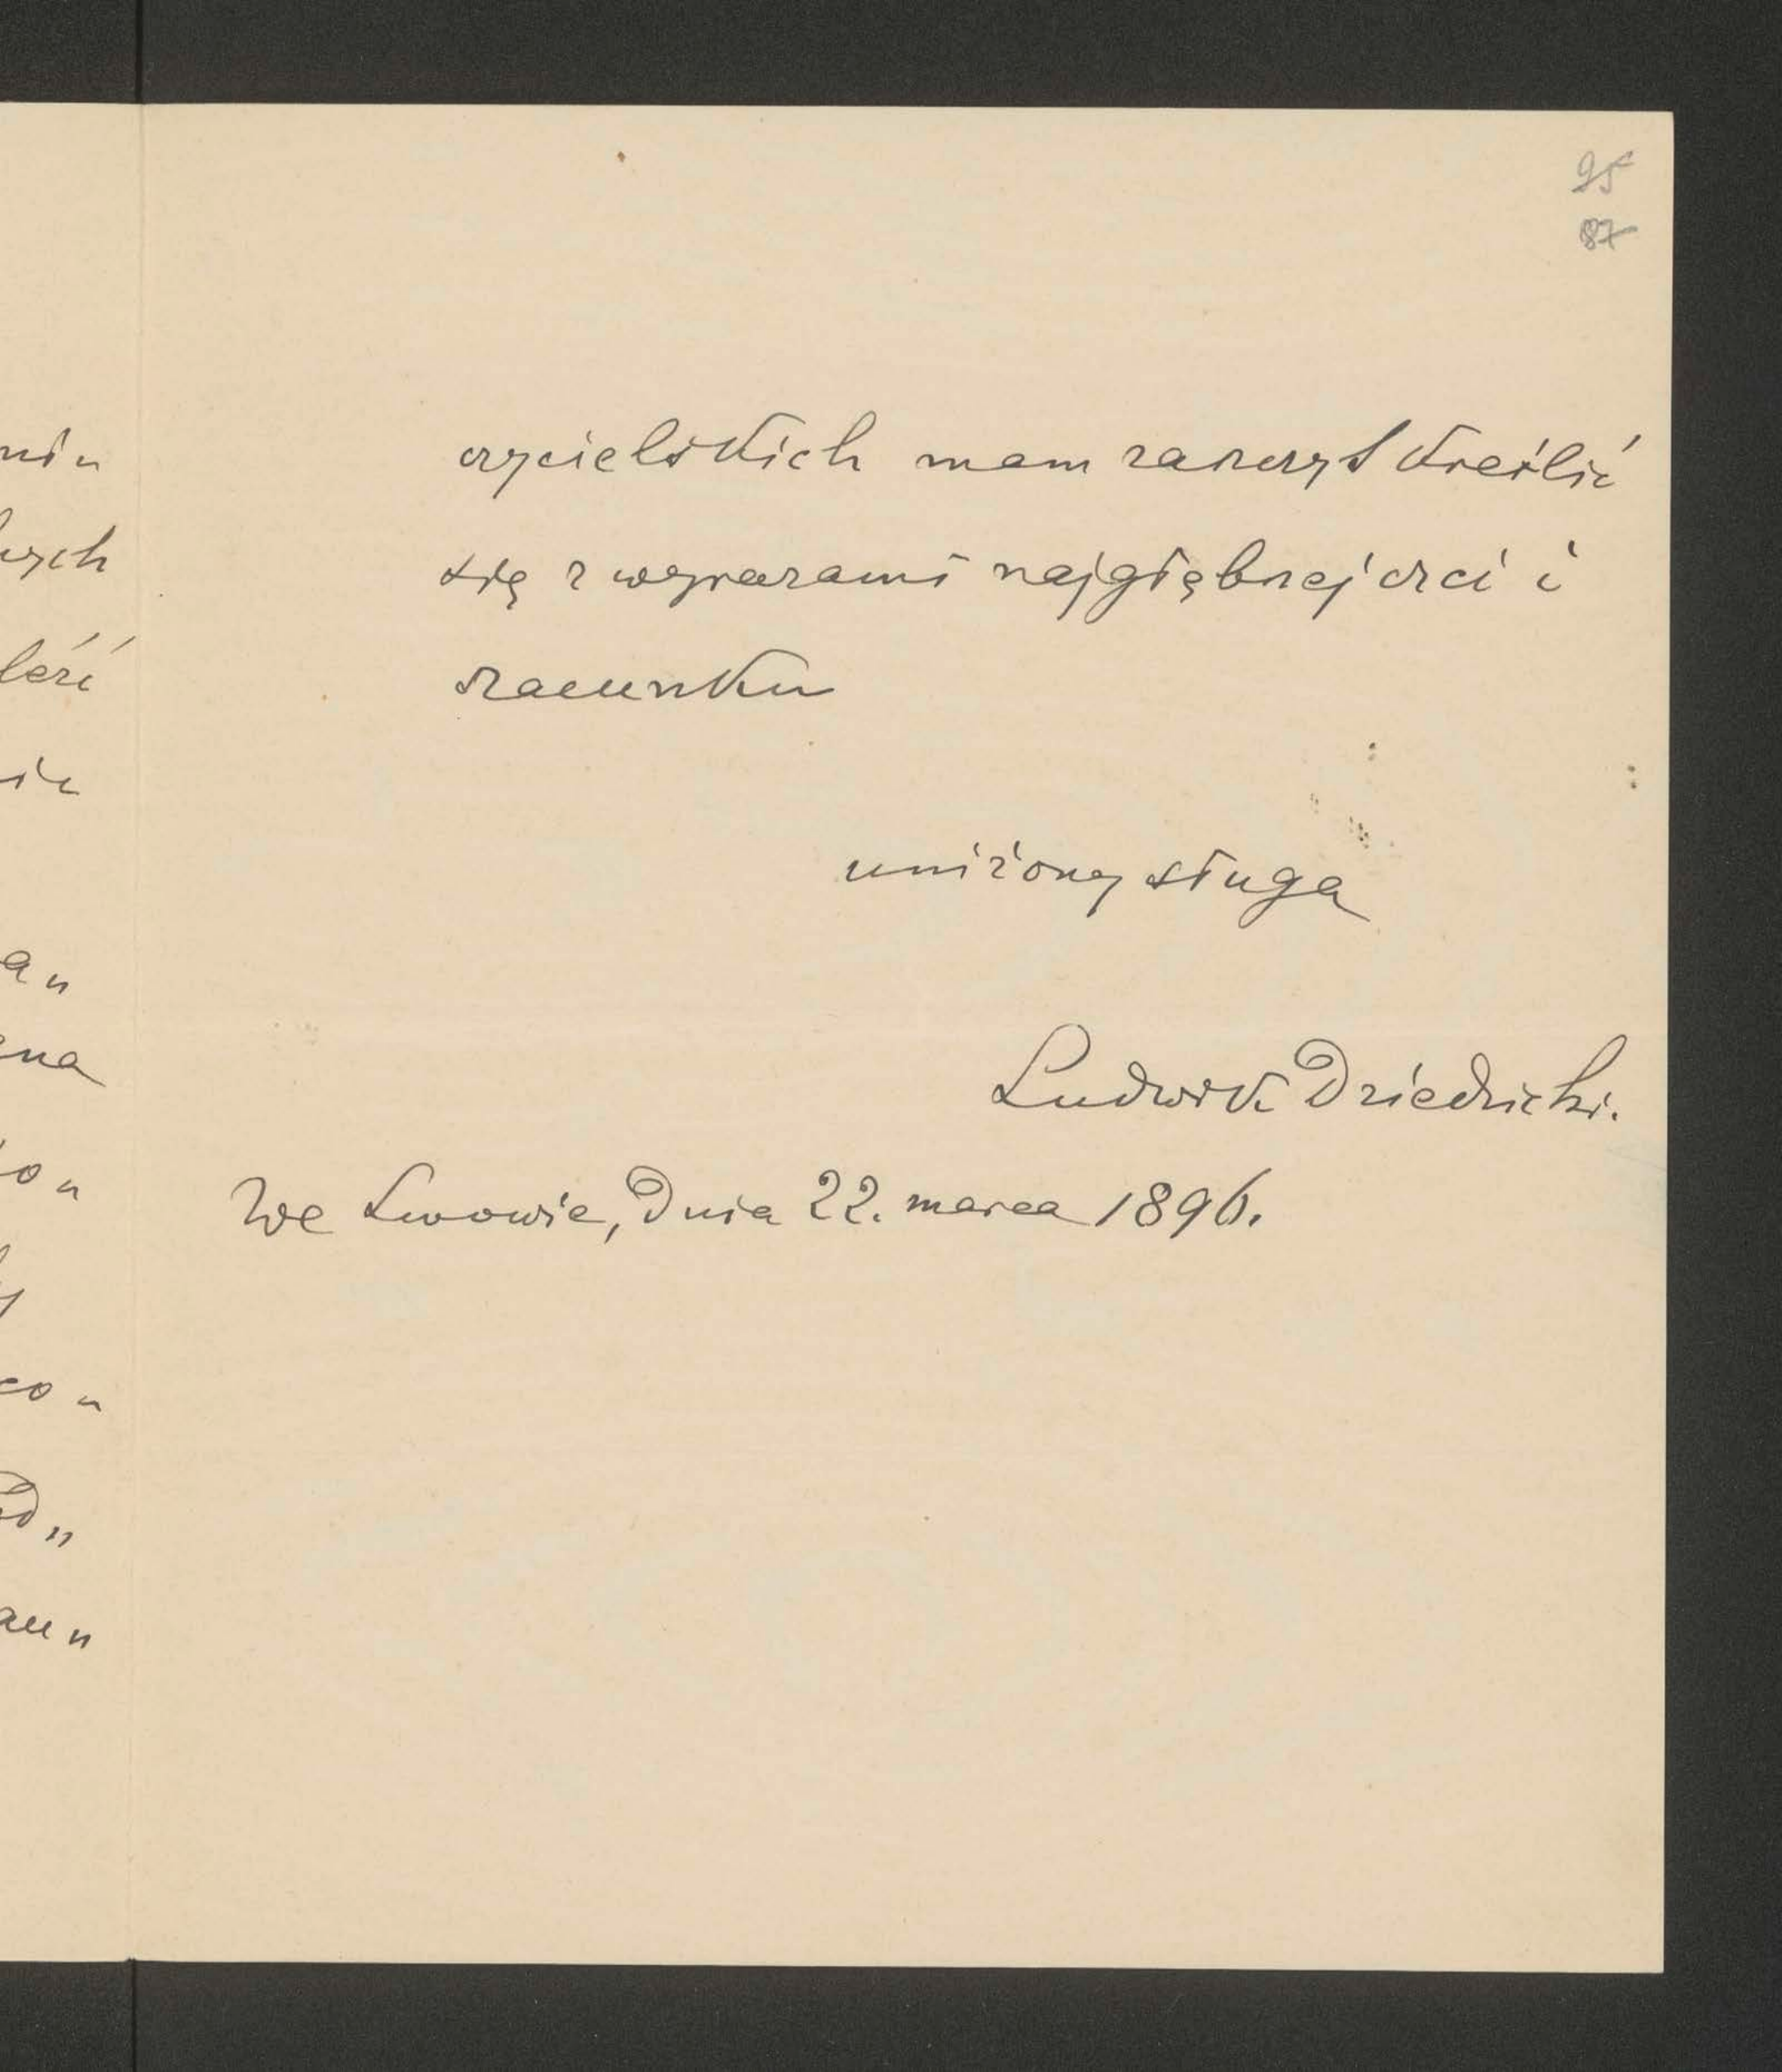 95
87
czycielskich mam zaszczyt kreślić
się z wyrazami najgłębszej czci i
szacunku
uniżony sługa
Ludwik Dziedzicki.
We Lwowie, dnia 22. marca 1896.
ych
leźć